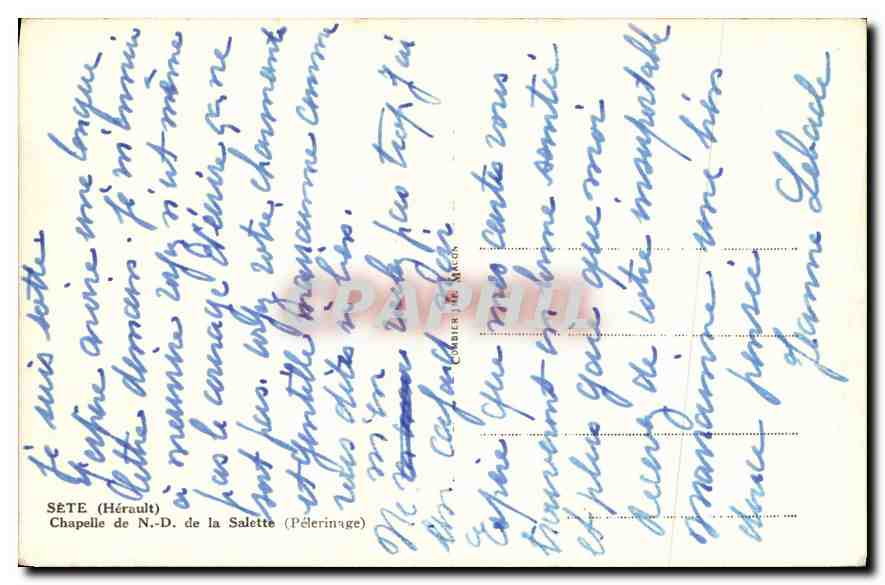 Je suis sotte
J'espère avoir une longue
lettre demain. Je m'ennuie
à mourir car je n'ai même
pas le courage d'écrire ça ne
sort pas. votre charmante
et gentille mananne comme
vous dites si bien.
Ne m'en voulez pas trop j'ai
un cafard noir
J'espère que mes cartes vous
trouveront en bonne santé
et plus gais que moi
Recevez de votre insupportable
mananne une bien
douce pensée
Jeanne
SÈTE (Hérault)
Chapelle de N.-D. de la Salette (Pélerinage)
COMBIER IMP. MACON
PAPHIL